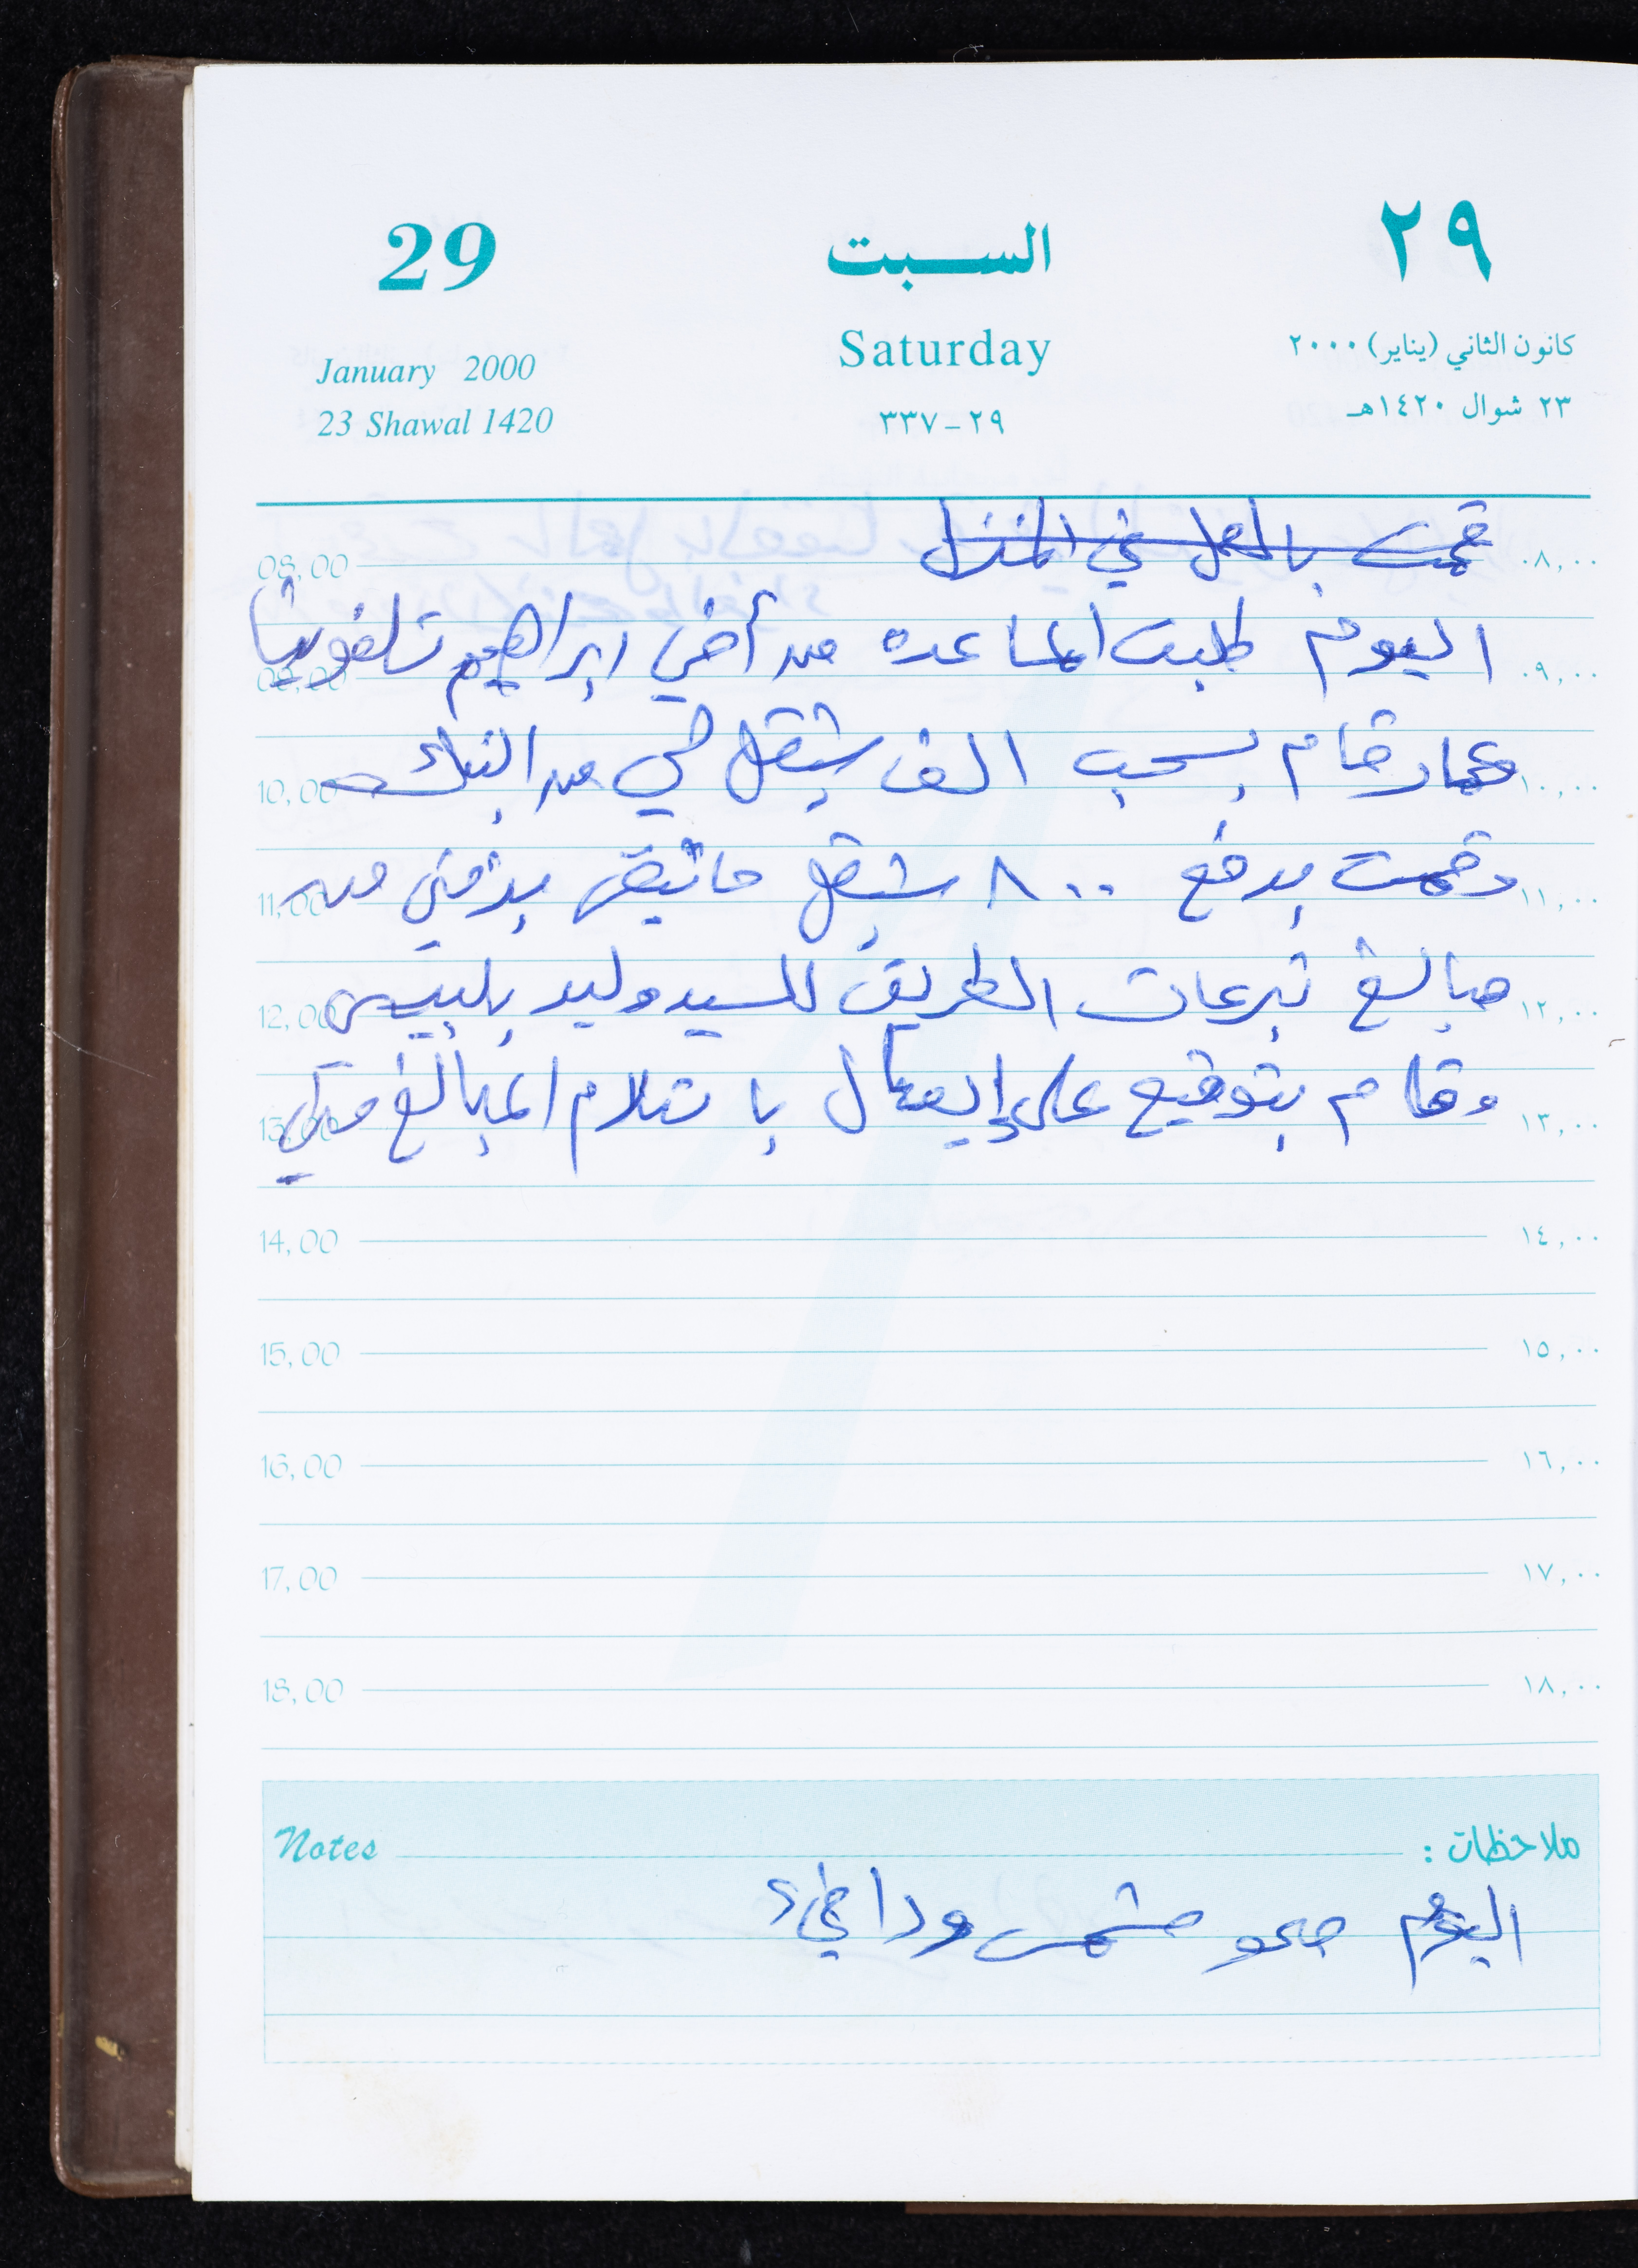 29 السبت ٢٩
January 2000 Saturday كانون الثاني (يناير) ٢٠٠٠
23 Shawal 1420 ٢٩-٣٣٧ ٢٣ شوال ١٤٢٠هـ
08,00 قمت بالعمل في المنزل ٠٨,٠٠
اليوم طلبت المساعده من أخي ابراهيم تلفونيا
09,00 ٠٩,٠٠
وعمار قام بسحب الف شيقل لي من البنك
10,00 ١٠,٠٠
وقمت بدفع ٨٠٠ شيقل ما تبقى بذمتي من
11,00 ١١,٠٠
مبالغ تبرعات الطريق للسيد وليد
12,00 ١٢,٠٠
وقام بتوقيع على إيصال باستلام المبالغ
13,00 ١٣,٠٠
14,00 ١٤,٠٠
15,00 ١٥,٠٠
16,00 ١٦,٠٠
17,00 ١٧,٠٠
18,00 ١٨,٠٠
Notes ملاحظات :
اليوم صحو مشمس ودافيء